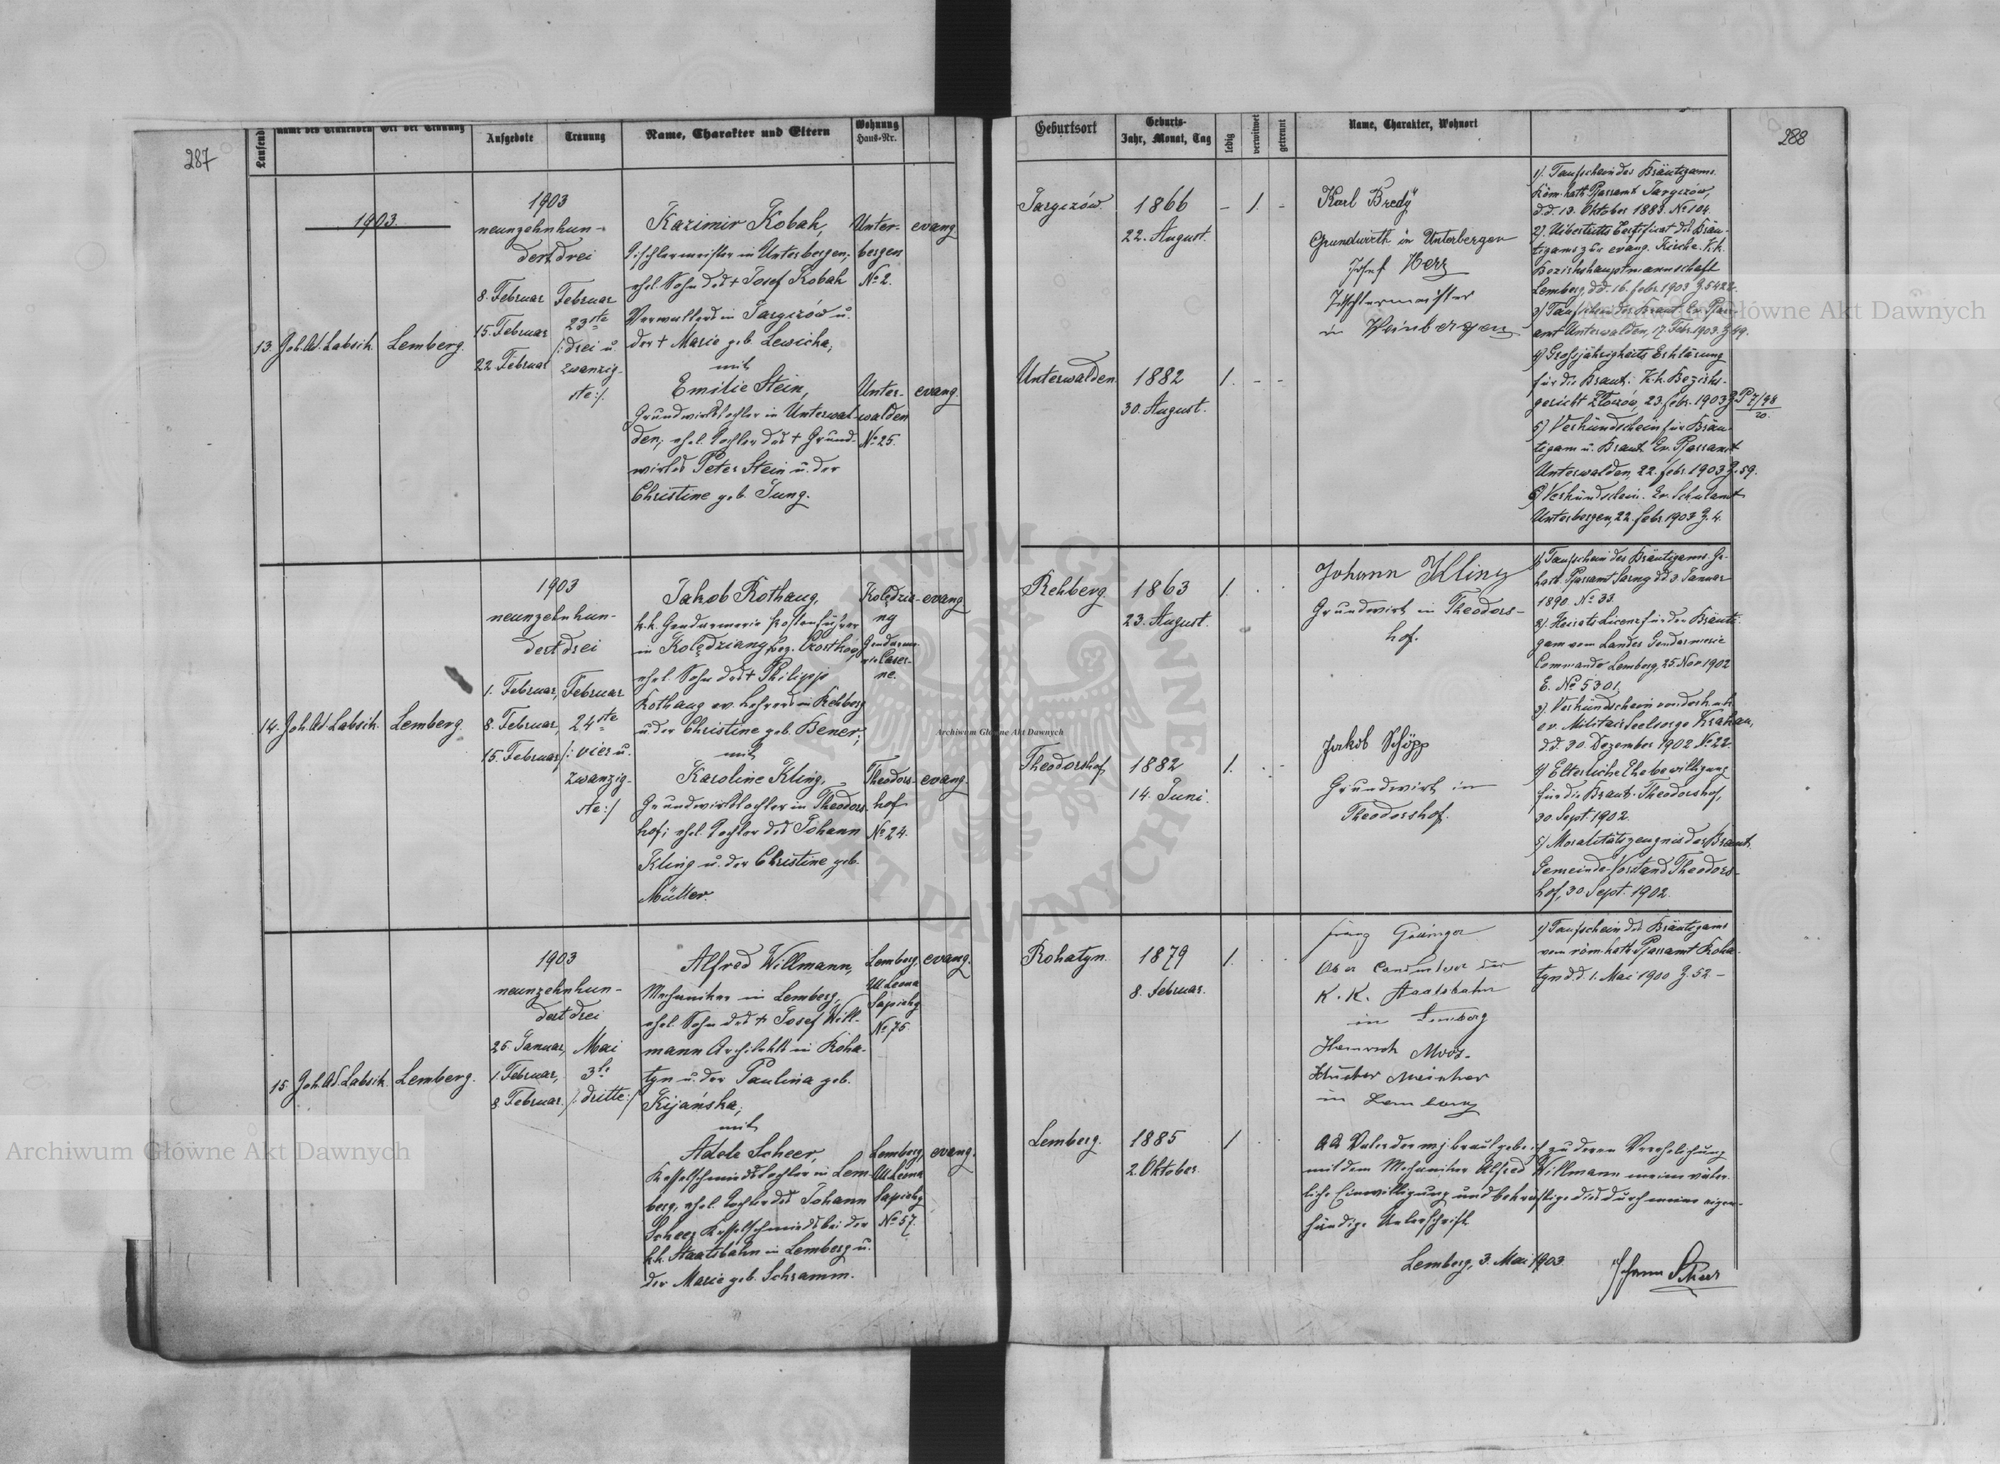 287
Laufende
Name des Trauenden
Ort der Trauung
Aufgebote
Trauung
Name, Charakter und Eltern
Wohnung
Haus-Nr.
1903.
13. Joh. Ad. Labsik.
Lemberg.
1903
neunzehnhun-
dert drei
8. Februar
15. Februar
22. Februar
Februar
23ste
/: drei u.
zwanzig-
ste :/
Kazimir Kobak,
Tischlermeister in Unterbergen,
ehel. Sohn des + Josef Kobak
Verwalters in Jaryczów u.
der + Marie geb. Lewicka,
mit
Emilie Stein,
Grundwirtstochter in Unterwal-
den, ehel. Tochter des + Grund-
wirtes Peter Stein u. der
Christine geb. Jung.
Unter-
bergen
No 2.
evang
Unter-
walden
No 25.
evang.
14. Joh. Ad. Labsik.
Lemberg.
1903
neunzehnhun-
dert drei
1. Februar,
8. Februar,
15. Februar
Februar
24ste
/: vier u.
zwanzig-
ste :/
Jakob Rothaug,
k. k. Gendarmerie Postenführer
in Kolędziany,
ehel. Sohn des + Philipp
Rothaug ev. Lehrers in Rehberg
u. der Christine geb. Bener,
mit
Karoline Kling,
Grundwirtstochter in Theodors-
hof; ehel. Tochter des Johann
Kling u. der Christine geb.
Müller.
Kolędzia-
ny
Gendarme-
rie Caser-
ne.
evang
Theodors-
hof
No 24.
evang.
15. Joh. Ad. Labsik.
Lemberg.
1903
neunzehnhun-
dert drei
25. Januar,
1. Februar,
8. Februar.
Mai
3te
/: dritte :/
Alfred Willmann,
Mechaniker in Lemberg,
ehel. Sohn des + Josef Will-
mann Architekt in Roha-
tyn u. der Paulina geb.
Kijańska,
mit
Adele Scheer,
Kesselschmiedstochter in Lem-
berg, ehel. Tochter des Johann
Scheer Kesselschmieds bei der
k.k. Staatsbahn in Lemberg u.
der Marie geb. Schramm.
Lemberg,
Ul. Leona
Sapiehy
No 75.
evang.
Lemberg,
Ul. Leona
Sapiehy
No 57.
evang.
288
Geburtsort
Geburts-
Jahr, Monat, Tag
ledig
verwitwet
getrennt
Name, Charakter, Wohnort
Jaryczów.
1866
22. August.
- 1. -
Karl Bredy
Grundwirth in Unterbergen
Josef Herz
Tischlermeister
in Weinbergen
Unterwalden
1882
30. August.
1. - -
1). Taufschein des Bräutigams.
Röm. kath. Pfarramt Jaryczów,
d.d. 13. Oktober 1883. No 104.
2). Uebertritts Certificat des Bräu-
tigams zur evang. Kirche. k. k.
Bezirkshauptmannschaft
Lemberg, dd. 16. Febr. 1903 Z. 5422.
3) Taufschein der Braut. Ev. Pfarr-
amt Unterwalden, 17. Febr. 1903. Z. 49.
4) Grossjährigkeits Erklärung
für die Braut: K. k. Bezirks-
gericht Złoczów, 23. Febr. 1903
5) Verkündschein für Bräu-
tigam u. Braut. Ev. Pfarramt
Unterwalden, 22. Febr. 1903 Z. 59.
6) Verkündschein. Ev. Schulamt
Unterbergen, 22. Febr. 1903 Z. 4.
Rehberg
1863
23. August.
1. . .
Johann Kling
Grundwirt in Theodors-
hof.
Jakob Schöpp
Grundwirt in
Theodorshof.
Theodorshof,
1882
14. Juni.
1. . -
1) Taufschein des Bräutigams. Gr.
kath. Pfarramt dd 3 Januar
1890. No 33.
2). Heirats Licenz für den Bräuti-
gam vom Landes Gendarmerie
Commando Lemberg, 25. Nov 1902
E. No 5301.
3) Verkündschein von der k. k.
ev. Militär Seelsorge Krakau,
d.d. 30. Dezember 1902 No 22.
4) Elterliche Ehebewilligung
für die Braut. Theodorshof,
30. Sept. 1902.
5) Moralitätszeugnis der Braut.
Gemeinde-Vorstand Theodors-
hof, 30 Sept. 1902.
Rohatyn.
1879
8. Februar.
1. . .
Ober Conducteur der
K. K. Staatsbahn
in Lemberg
Heinrich Moos-
in Lemberg
1) Taufschein des Bräutigams
vom röm. kath. Pfarramt Roha-
tyn dd. 1. Mai 1900 Z. 52. -
Lemberg.
1885
2. Oktober.
1 . .
Als Vater der mj. Braut gebe ich zu deren Verehelichung
mit dem Mechaniker Alfred Willmann meine väter-
liche Einwilligung und bekräftige dies durch meine eigen-
händige Unterschrift.
Lemberg, 3. Mai 1903.
Johann Scheer
Archiwum Główne Akt Dawnych
Archiwum Główne Akt Dawnych
Archiwum Główne Akt Dawnych